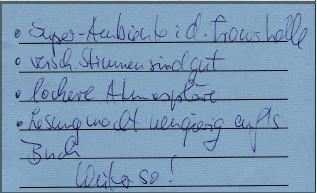 • Super-Ambiente i.d. Trauerhalle
• versch. Stimmen sind gut
• lockere Atmosphäre
• Lesung macht neugierig aufs
Buch
Weiter so!